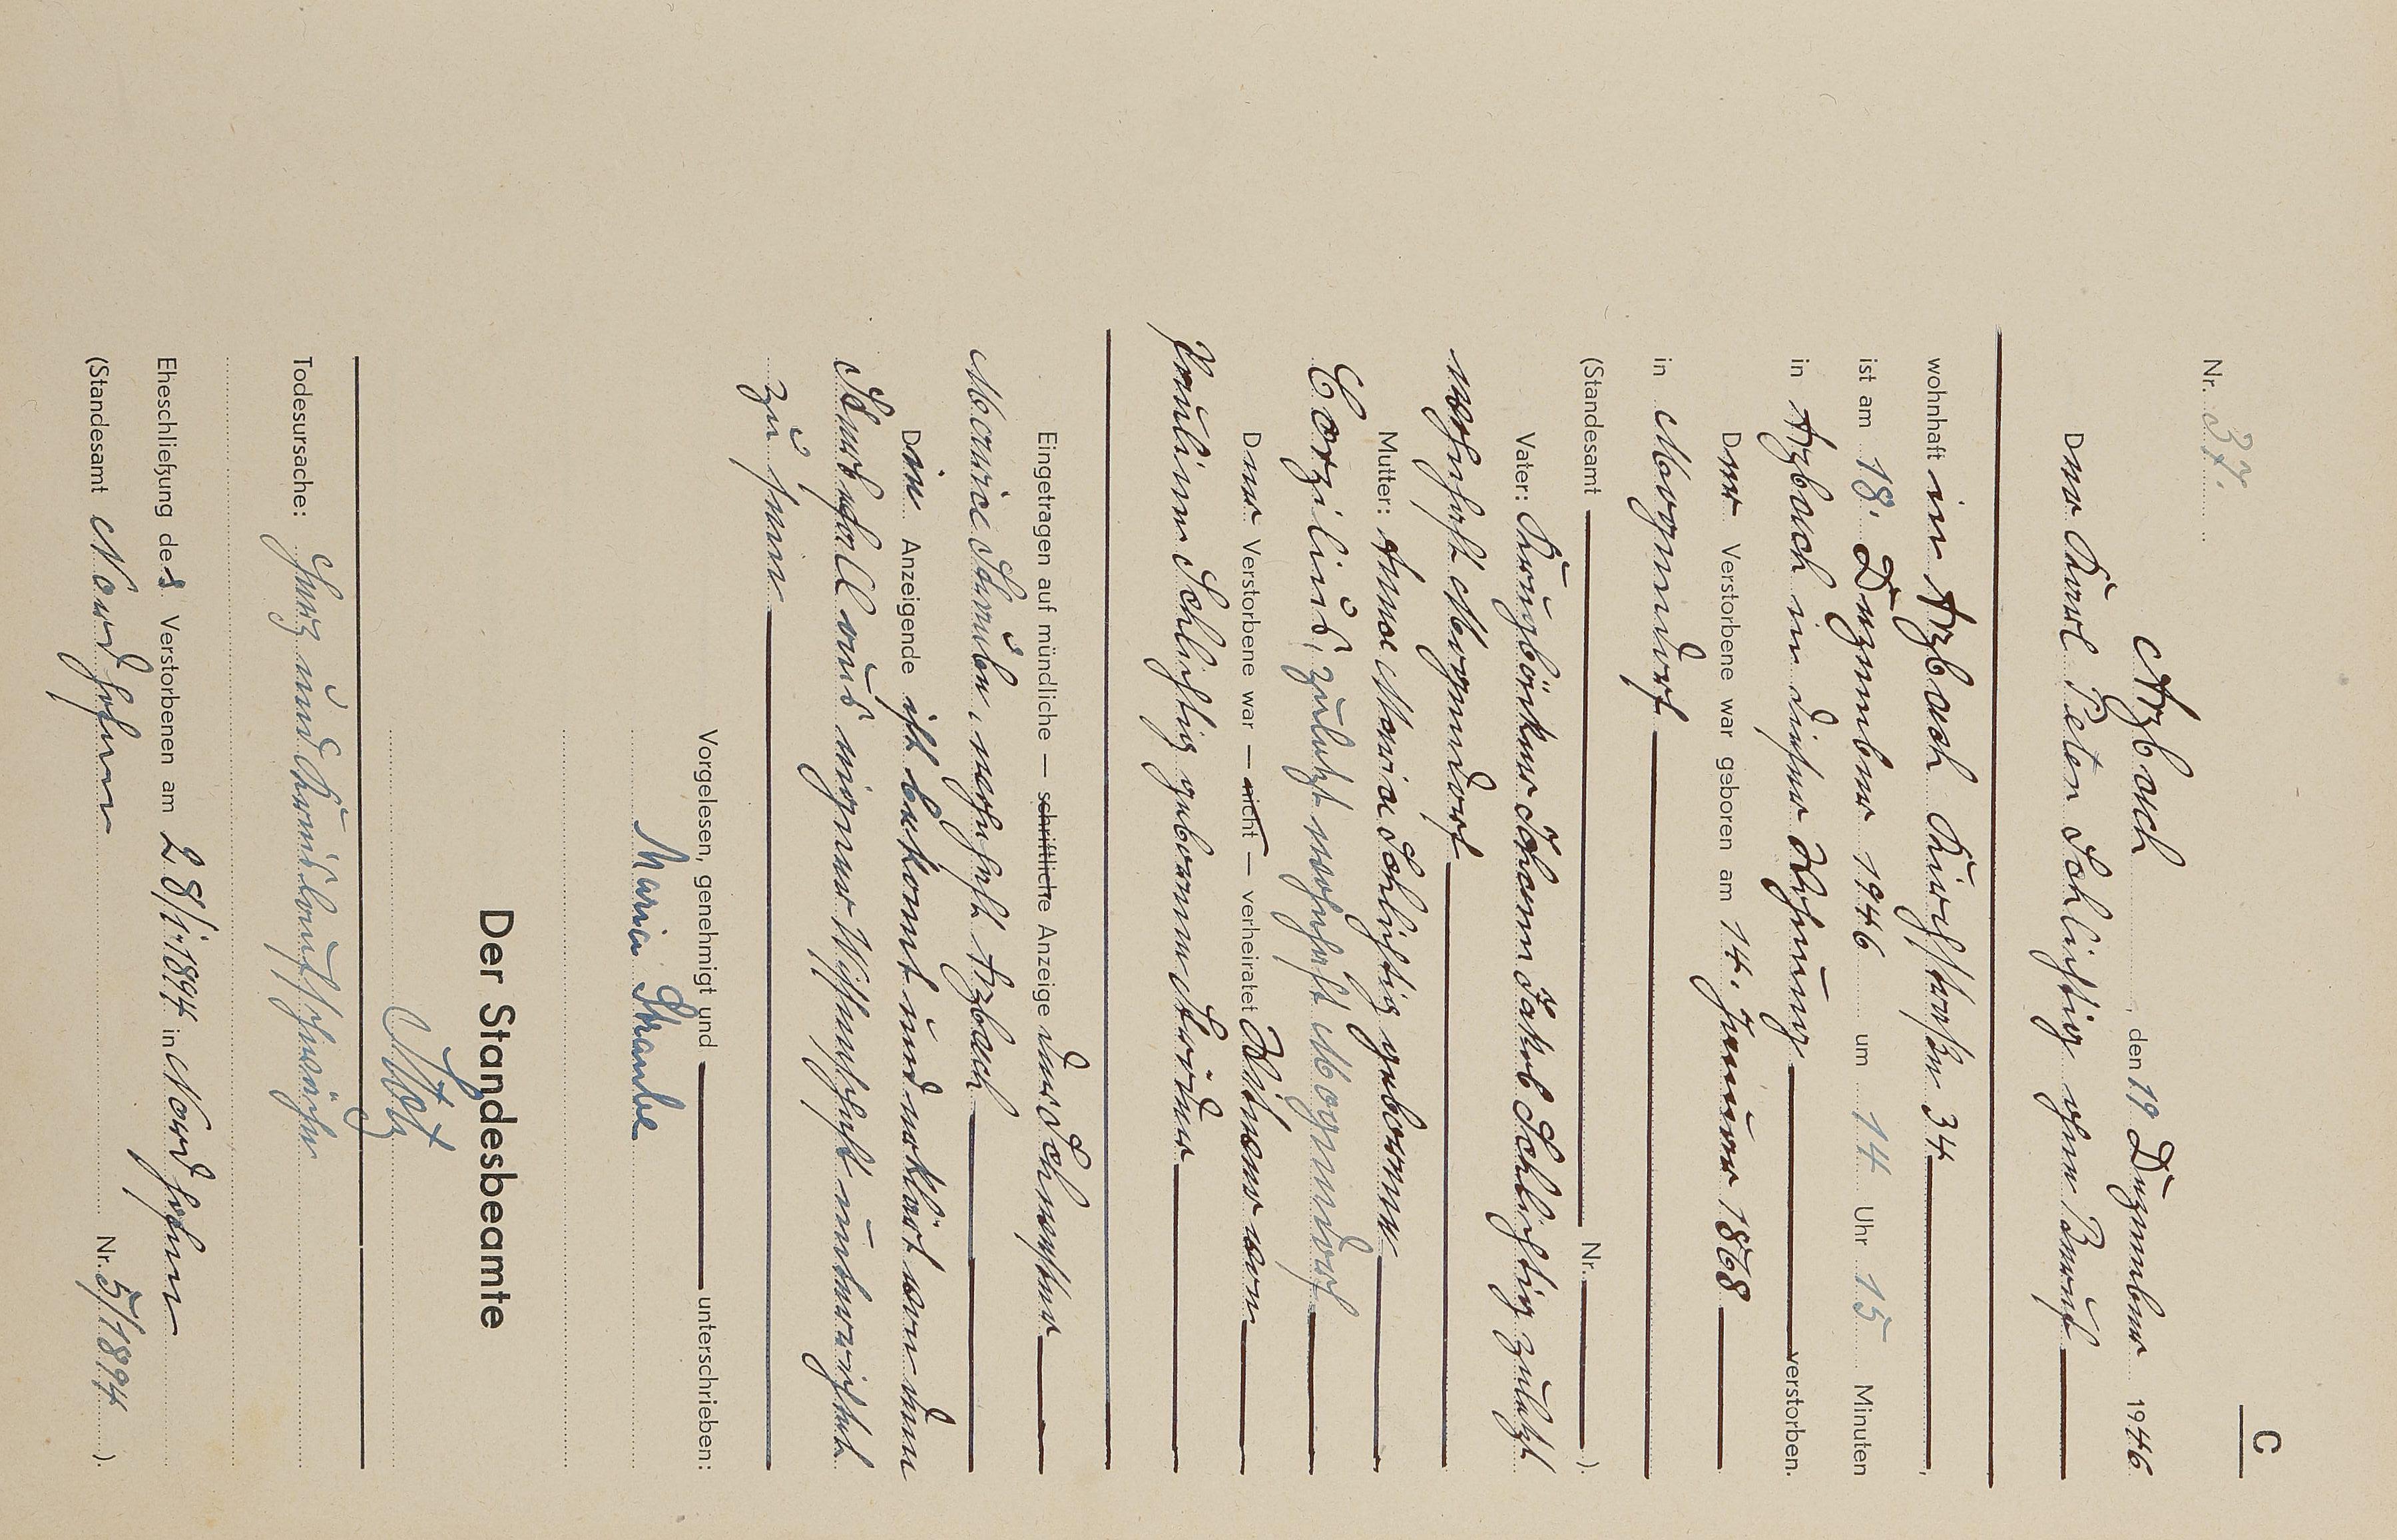 C
Nr. 37.
Arzbach, den 19 Dezember 1946
Der Karl Peter Schlichtig ohne Beruf
wohnhaft in Arzbach Kirchstraße 34,
ist am 18. Dezember 1946 um 14 Uhr 15 Minuten
in Arzbach in dieser Wohnung verstorben.
Der Verstorbene war geboren am 14. Januar 1868
in Mogendorf
(Standesamt Nr. ).
Vater: Johann Jakob Schlichtig zuletzt
wohnhaft Mogendorf
Mutter: Anna Maria Schlichtig geborene
zuletzt wohnhaft Mogendorf
Der Verstorbene war — nicht — verheiratet Witwer von
Pauline Schlichtig geborene
Eingetragen auf mündliche — schriftliche Anzeige der Schwester
Maria Straube, wohnhaft Arzbach
Die Anzeigende ist bekannt und erklärt von dem
Sterbefall aus eigener Wissenschaft unterrichtet
zu sein
Vorgelesen, genehmigt und unterschrieben:
Maria Straube
Der Standesbeamte
Todesursache: Herz und Kreislaufschwäche
Eheschließung des Verstorbenen am 28/1.1894 in Nordhofen
(Standesamt Nordhofen Nr. 5/1894 ).